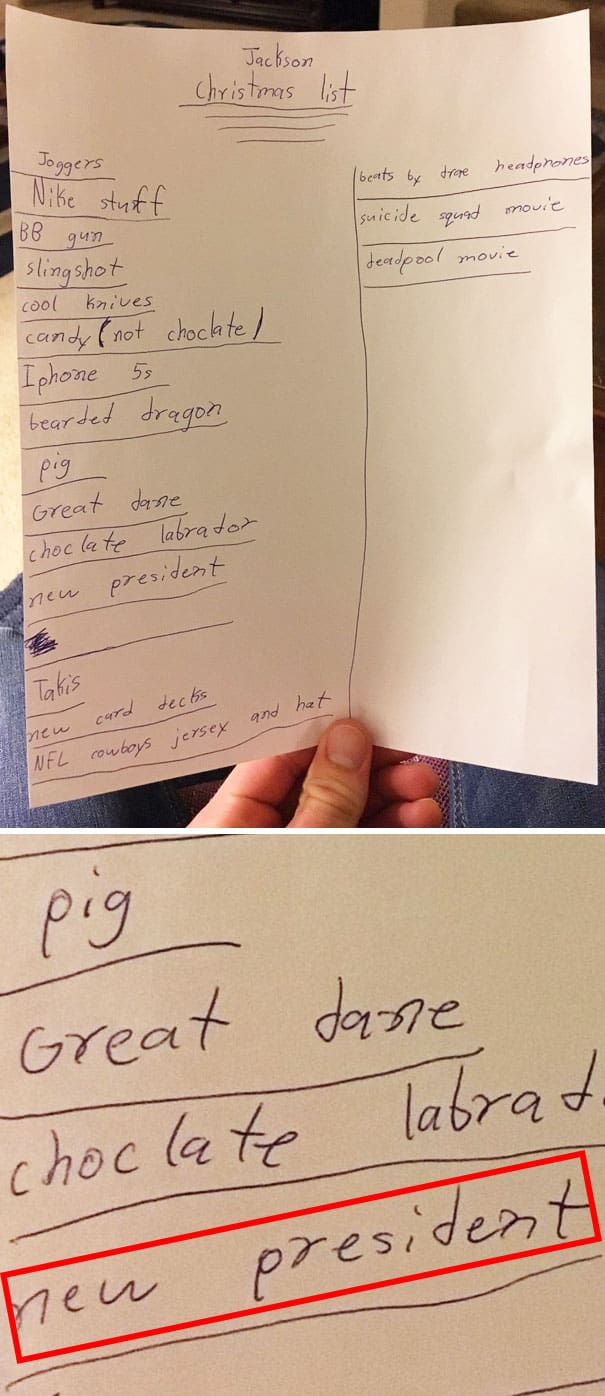 Jackson
Christmas list
Joggers
Nike stuff
BB gun
slingshot
cool knives
candy (not choclate)
Iphone 5s
bearded dragon
pig
Great dane
choclate labrador
new president
Takis
new card decks
NFL cowboys jersey and hat
beats by drae headphones
suicide squad movie
deadpool movie
pig
Great dane
choclate labrad
new president